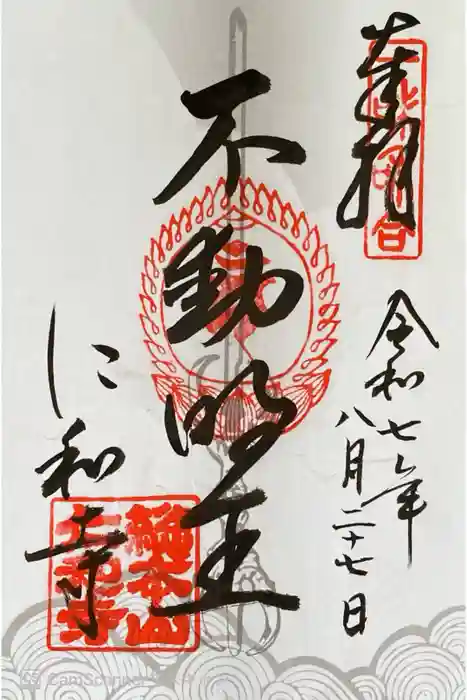 奉拝
令和七年
八月二十七日
不動明王
仁和寺
總本山
仁和寺
CamScanner